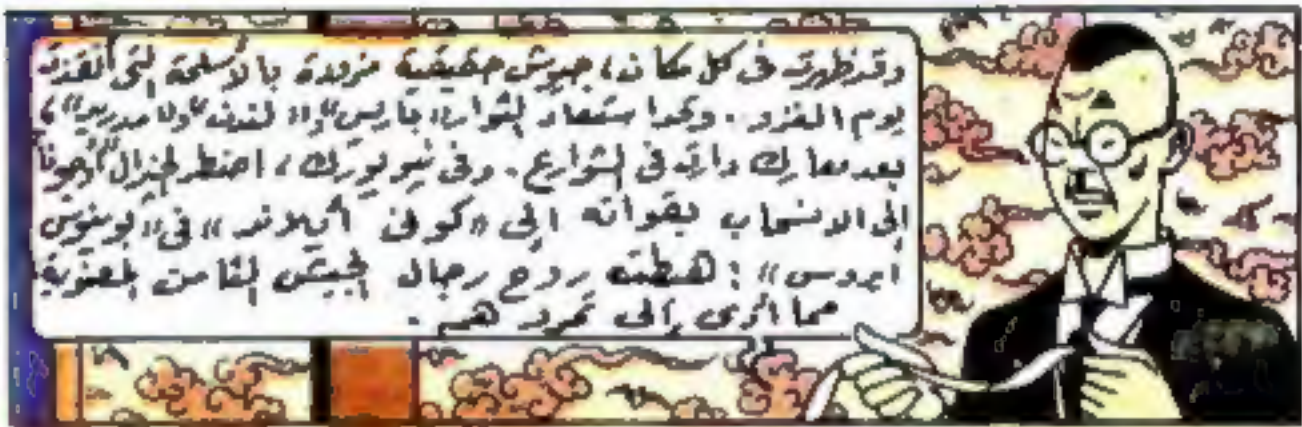 وقد ظهرت فى كل مكان، جيوش حقيقية مزودة بالأسلحة التى ألقيت
يوم الغزو. وكدا ستعاد الثوار "باريس" و"لندن" و"مدريد"،
بعد معارك دارت فى الشوارع. وفى نيويورك، اضطر الجنرال
إلى الانسحاب بقواته إلى "كونى أيلاند" فى "بوينوس
ايروس": هبطت روح رجال الجيش الثامن المعنوية
مما أدى إلى تمردهم.